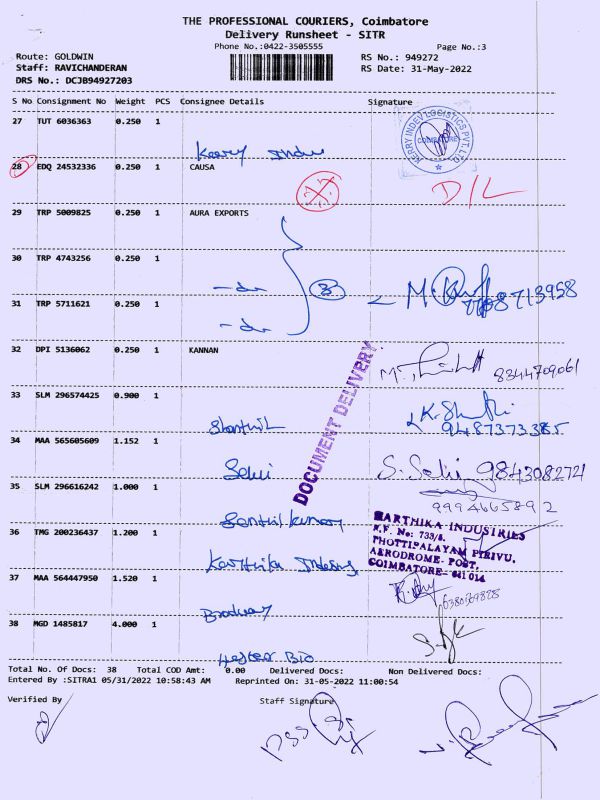 THE PROFESSIONAL COURIERS, Coimbatore
Delivery Runsheet - SITR
Phone No.:0422-3505555 Page No.:3
Route: GOLDWIN RS No.: 949272
Staff: RAVICHANDERAN RS Date: 31-May-2022
DRS No.: DCJB94927203
S No Consignment No Weight PCS Consignee Details Signature
27 TUT 6036363 0.250 1
KERRY INDEV LOGISTICS PVT. LTD
COIMBATORE
Kerry Indev
28 EDQ 24532336 0.250 1 CAUSA
D/L
29 TRP 5009825 0.250 1 AURA EXPORTS
30 TRP 4743256 0.250 1
-do 3
31 TRP 5711621 0.250 1
-do
32 DPI 5136062 0.250 1 KANNAN
8344709061
DOCUMENT DELIVERY
33 SLM 296574425 0.900 1
9487373385
34 MAA 565605609 1.152 1
Selvi S. Selvi 9843082721
35 SLM 296616242 1.000 1
9994665892
Senthil kumar
36 TMG 200236437 1.200 1
HARTHIKA INDUSTRIES
S.F. No: 733/5.
THOTTIPALAYAM PIRIVU,
AERODROME- POST,
COIMBATORE- 641 014
Karthika Indus
37 MAA 564447950 1.520 1
Broadway
38 MGD 1485817 4.000 1
Hester Bio
Total No. Of Docs: 38 Total COD Amt: 0.00 Delivered Docs: Non Delivered Docs:
Entered By :SITRA1 05/31/2022 10:58:43 AM Reprinted On: 31-05-2022 11:00:54
Verified By Staff Signature